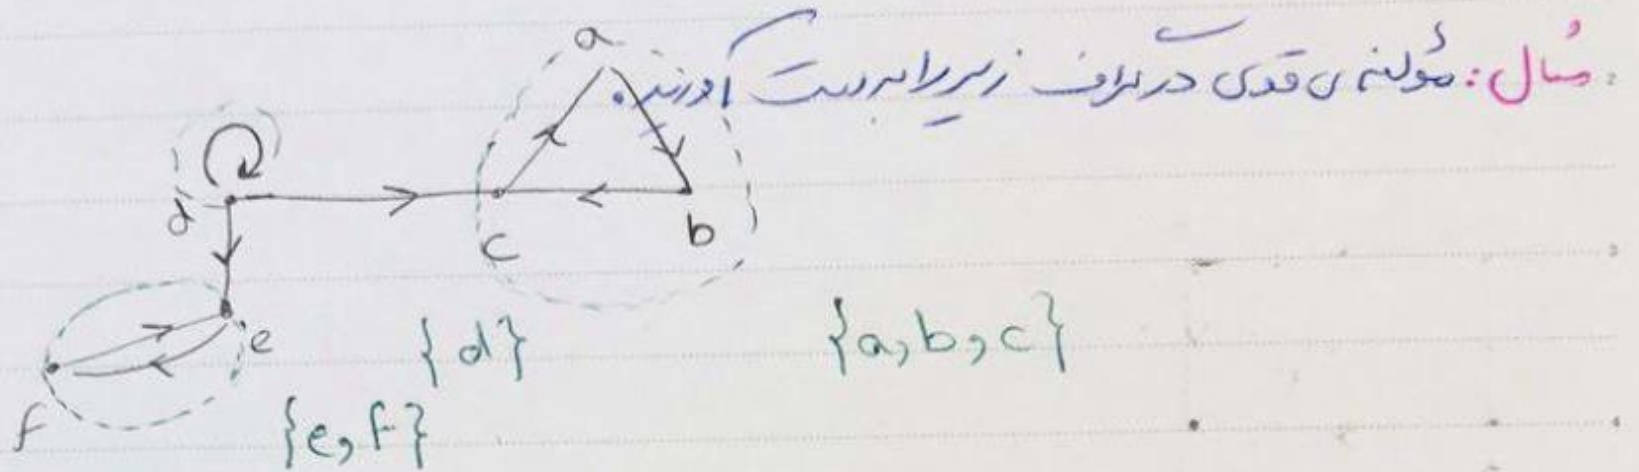 مثال: مؤلفه ی قوی در گراف زیر را بدست آورید.
a
d
c
b
e
f
{d}
{a,b,c}
{e,f}